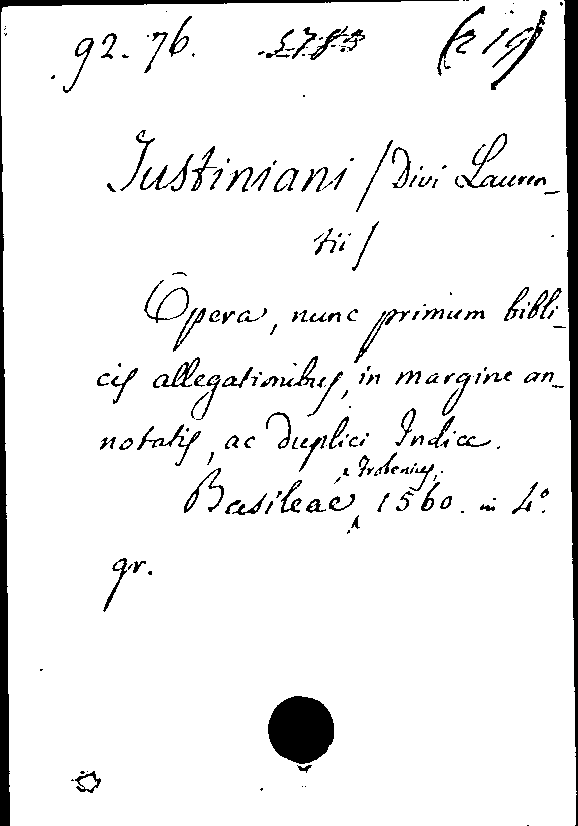 92. 76. 5783 (z 19)
Iustiniani / Divi Lauren_
tii /
Opera, nunc primum bibli_
cis allegationibus, in margine an_
notatis, ac duplici Indice.
Frobenius,
Basileae, 1560. in 4.º
gr.